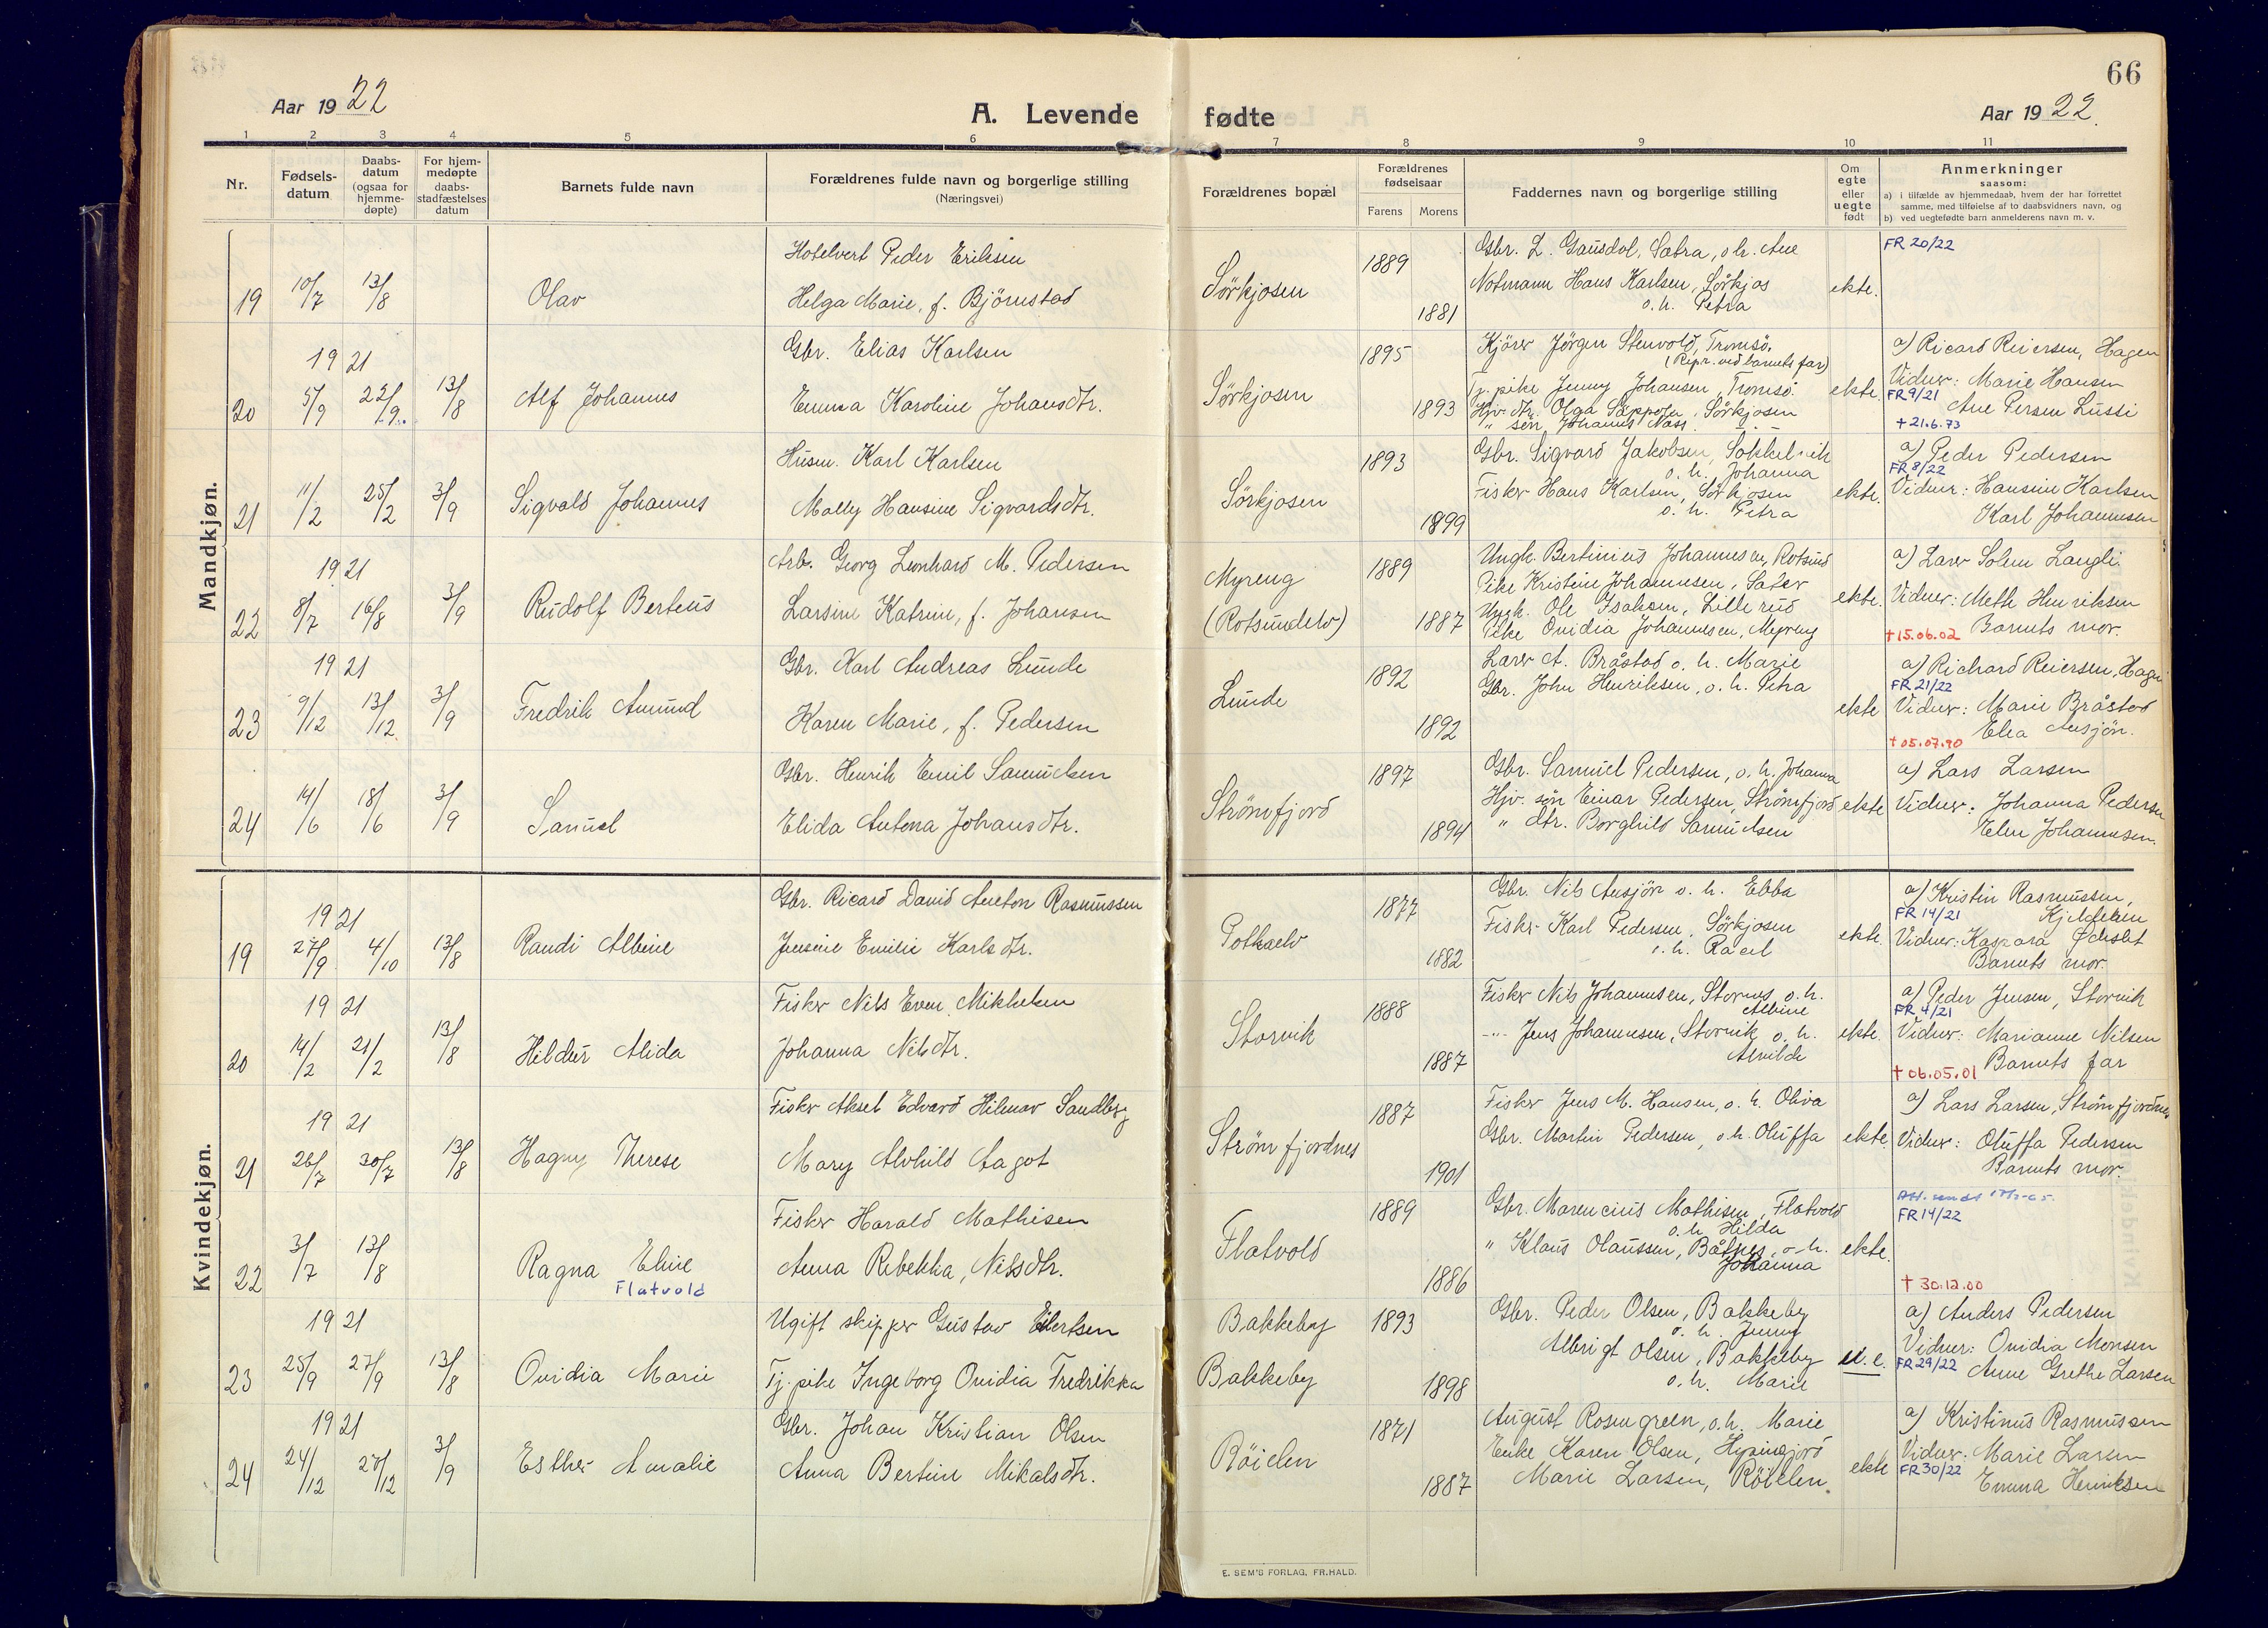 66
Aar 1922
A. Levende
fødte
Aar 1922.
1 2 3 4 5 6 7 8 9 10 11
Nr.
Fødsels-datum
Daabs-datum (ogsaa for hjemme-døpte)
For hjem-medøpte daabs-stadfæstelses datum
Barnets fulde navn
Forældrenes fulde navn og borgerlige stilling
(Næringsvei)
Forældrenes bopæl
Forældrenes fødselsaar
Farens Morens
Faddernes navn og borgerlige stilling
Om egte eller uegte født
Anmerkninger
saasom:
a) i tilfælde av hjemmedaab, hvem der har forrettet samme, med tilføielse af to daabsvidners navn, og
b) ved uegtefødte barn anmelderens navn m. v.
Mandkjøn.
19 10/7 13/8 Olav
Hotelvert Peder Eriksen
Helga Marie, f. Björnstad
Sørkjosen
1889
1881
Gbr. L. Gausdal, Sætra, o. h. Ane
Notmann Hans Karlsen, Sörkjos
o. h. Petra
ekte.
FR 20/22
1921
20 5/9 22/9. 13/8 Alf Johannes
Gbr. Elias Karlsen
Emma Karoline Johansdtr.
Sørkjosen
1895
1893
Kjörer Jörgen Stenvold, Tromsö.
(Repr. ved barnets far)
Tj. pike Jenny Johansen, Tromsö
Hjv. dtr. Olga Sappola, Sörkjosen
" sön Johannes Nass. - . -
ekte.
a) Ricard Reiersen, Hagen
Vidner: Marie Hansen
FR 9/21
Ane Persen Lussi
+ 21.6.73
21 11/2 25/2 3/9 Sigvald Johannes
Husm. Karl Karlsen
Mally Hansine Sigvardsdtr.
Sörkjosen
1893
1899
Gbr. Sigvard Jakobsen, Sokkelvik
o. h. Johanna
Fisker Hans Karlsen, Sörkjosen
o. h. Petra
ekte.
a) Peder Pedersen
FR 8/22
Vidner: Hansine Karlsen
Karl Johannesen
1921
22 8/7 16/8 3/9 Rudolf Berteus
Arb. Georg Leonhard M. Pedersen
Larsine Katrine, f. Johansen
Myreng
(Rotsundelv)
1889
1887
Ungk. Bertinius Johannesen, Rotsund
Pike Kristine Johannesen, Sæter
Ungk. Ole Isaksen, Lillerud
Pike Ovidia Johannesen, Myreng
ekte.
a) Lærer Solem Langli
Vidner: Meth Henriksen
Barnets mor.
+ 15.06.02
1921
23 9/12 13/12 3/9 Fredrik Amund
Gbr. Karl Andreas Lunde
Karen Marie, f. Pedersen
Lunde
1892
1892
Lærer A. Bråstad o. h. Marie
Gbr. John Henriksen, o. h. Petra
ekte
a) Richard Reiersen, Hagen
FR 21/22
Vidner: Marie Bråstad
Elea Ansjön.
+ 05.07.90
24 14/6 18/6 3/9 Samuel
Gbr. Henrik Emil Samuelsen
Elida Antona Johansdtr.
Strömfjord
1897
1894
Gbr. Samuel Pedersen, o. h. Johanna
Hjv. sön Einar Pedersen, Strömfjord
" dtr. Borghild Samuelsen
ekte
a) Lars Larsen
Vidner: Johanna Pedersen
Elen Johannesen.
Kvindekjøn.
1921
19 27/9 4/10 13/8 Randi Albine
Gbr. Ricard David Aneton Rasmussen
Jensine Emilie Karlsdtr.
Potkaelv
1877
1882
Gbr. Nils Ansjön o. h. Ebba
Fisker Karl Pedersen, Sörkjosen
o. h. Rael
ekte.
a) Kristin Rasmussen,
FR 14/21 Kjeldelven
Vidner: Kaspara
Barnets mor.
1921
20 14/2 21/2 13/8 Hildur Alida
Fisker Nils Even Mikkelsen
Johanna Nilsdtr.
Storvik
1888
1887
Fisker Nils Johannesen, Stornes o. h.
Albine
-"- Jens Johannesen, Storvik o. h.
Alvilde
ekte.
a) Peder Jensen, Storvik
FR 4/21
Vidner: Marianne Nilsen
Barnets far
+ 06.05.01
1921
21 26/7 30/7 13/8 Hagny Therese
Fisker Aksel Edvard Hilmar Sandberg
Mary Alvhild Aagot
Strömfjordnes
1887
1901
Fisker Jens M. Hansen, o. h. Oliva
Gbr. Martin Pedersen, o. h. Oluffa
ekte.
a) Lars Larsen, Strömfjordnes
Vidner: Oluffa Pedersen
Barnets mor.
22 3/7 13/8 Ragna Eline
Flatvold
Fisker Harald Mathisen
Anna Rebekka, Nilsdtr.
Flatvold
1889
1886
Gbr. Marencius Mathisen, Flatvold
o. h. Hilda
" Klaus Olaussen, Båtnes, o. h.
Johanna
ekte.
Att. sendt
FR 14/22
+ 30.12.00
1921
23 25/9 27/9 13/8 Ovidia Marie
Ugift skipper Gustav Eilertsen
Tj. pike Ingeborg Ovidia Fredrikka
Bakkeby
Bakkeby
1893
1898
Gbr. Peder Olsen, Bakkeby
o. h. Jenny
Albrigt Olsen, Bakkeby
o. h. Marie
u. e.
a) Anders Pedersen
Vidner: Ovidia Monsen
FR 29/22 Anne Grethe Larsen
1921
24 24/12 27/12 3/9 Esther Amalie
Gbr. Johan Kristian Olsen
Anna Bertine Mikalsdtr.
Röielen
1871
1887
August Rosengreen, o. h. Marie
Enke Karen Olsen,
Marie Larsen, Röielen.
ekte
a) Kristinus Rasmussen
Vidner: Marie Larsen
FR 30/22
Emma Henriksen
E. SEM'S FORLAG, FR.HALD.